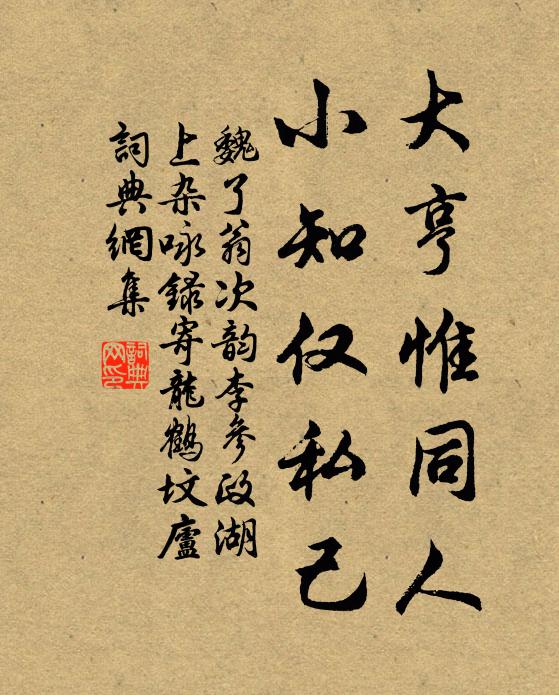 大亨惟同人
小知仅私己
魏了翁次韵李参政湖
上杂咏録寄龍鶴坟廬
詞典網集
詞典
网印